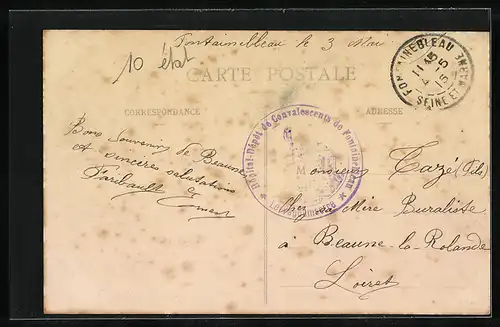 Fontainebleau le 3 Mai
10 état
CARTE POSTALE
FONTAINEBLEAU
11
4-5
15
SEINE ET MARNE
CORRESPONDANCE
ADRESSE
Hôpital-Dépôt de Convalescents de Fontainebleau
Bons Souvenirs de Beaune
et sincères salutations
Faribault
Monsieur Tazé (Fils)
Chez Mère Buraliste
à Beaune-la-Rolande
Loiret